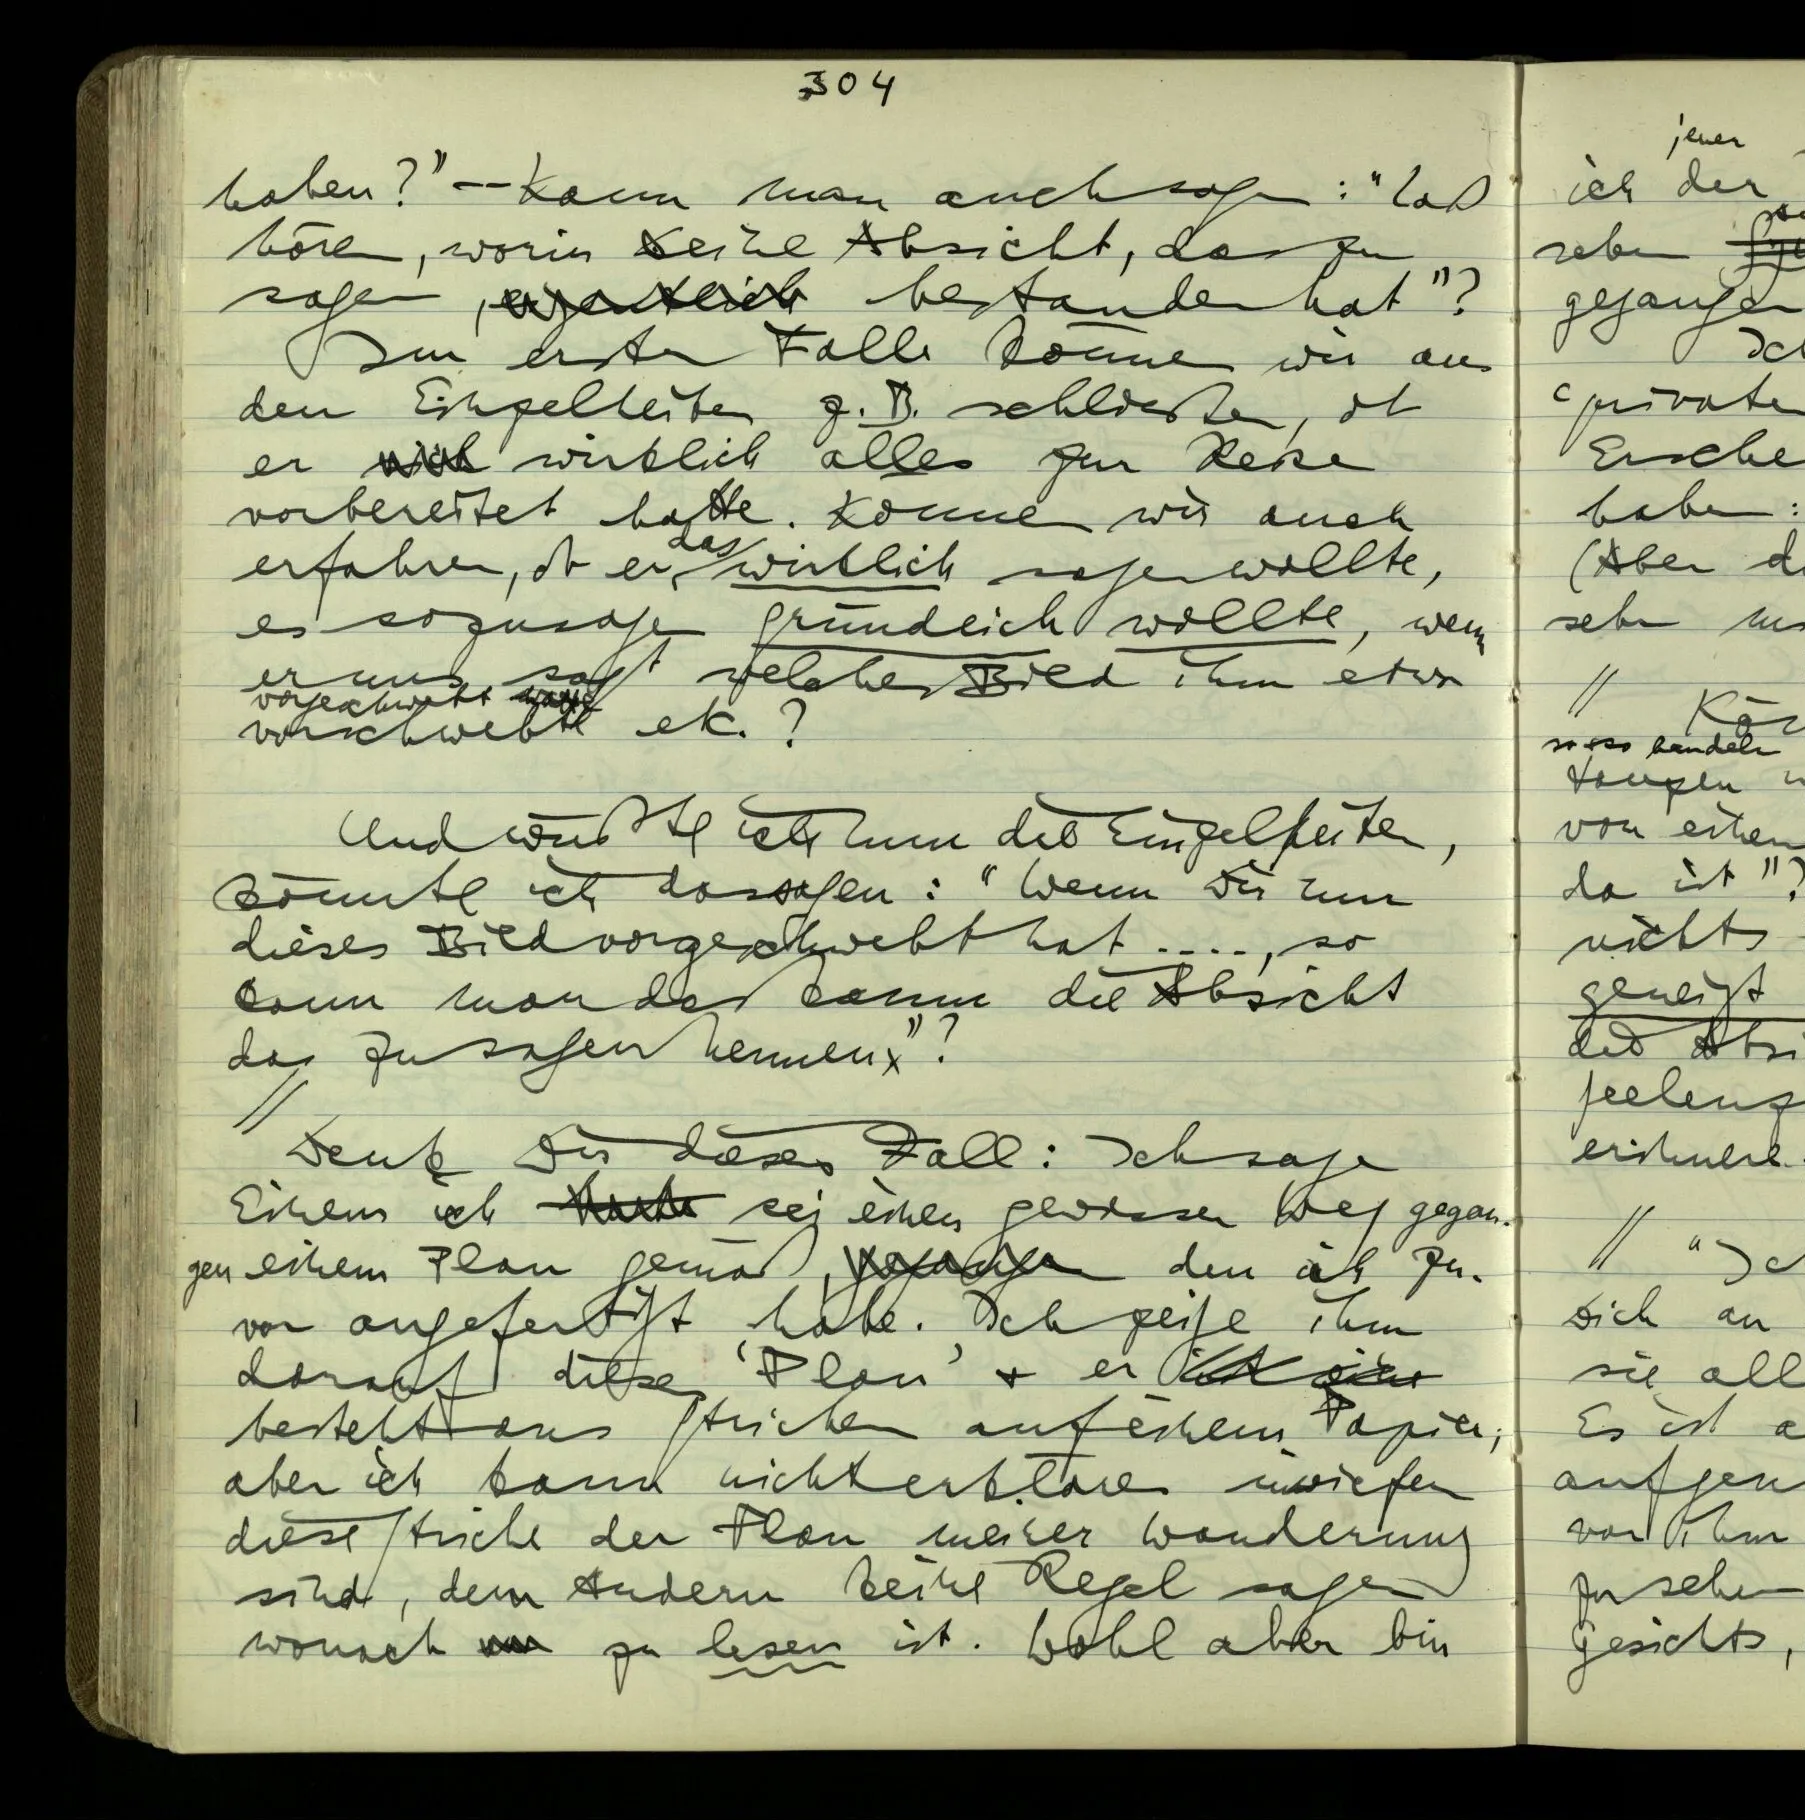 304
haben?" — Kann man auch sagen: "Laß
hören, worin Deine Absicht, das zu
sagen, eigentlich bestanden hat"?
Im ersten Falle können wir aus
den Einzelheiten z.B. schließen, ob
er wirklich alles zur Reise
vorbereitet hatte. Können wir auch
das
erfahren, ob er wirklich sagen wollte,
es sozusagen gründlich wollte, wenn
er uns sagt welches Bild ihm etwa
vorgeschwebt hatte
vorschwebte etc.?
Und wüßte ich nun die Einzelheiten,
könnte ich da sagen: "Wenn Dir nun
dieses Bild vorgeschwebt hat ...., so
kann man das kaum die Absicht
das zu sagen nennen"?
//
Denk Dir diesen Fall: Ich sage
Einem ich sei einen gewissen Weg gegan-
gen einem Plan gemäß, gegangen den ich zu-
vor angefertigt habe. Ich zeige ihm
darauf diesen 'Plan' + er ist ein
besteht aus Strichen auf einem Papier;
aber ich kann nicht erklären inwiefern
diese Striche der Plan meiner Wanderung
sind, dem Andern keine Regel sagen
wonach zu lesen ist. Wohl aber bin
jener
ich der
sehen
gegangen
Ich
'privaten
Ersche
haben:
(Aber di
sehr
//
Kön
so + so handeln
tanzen
von einem
da ist"?
nichts
geneigt
die Absi
seelenz
erinnere
// "Ich
Dich an
sie all
Es ist a
aufgen
vor ihm
zu sehen
Gesichts,